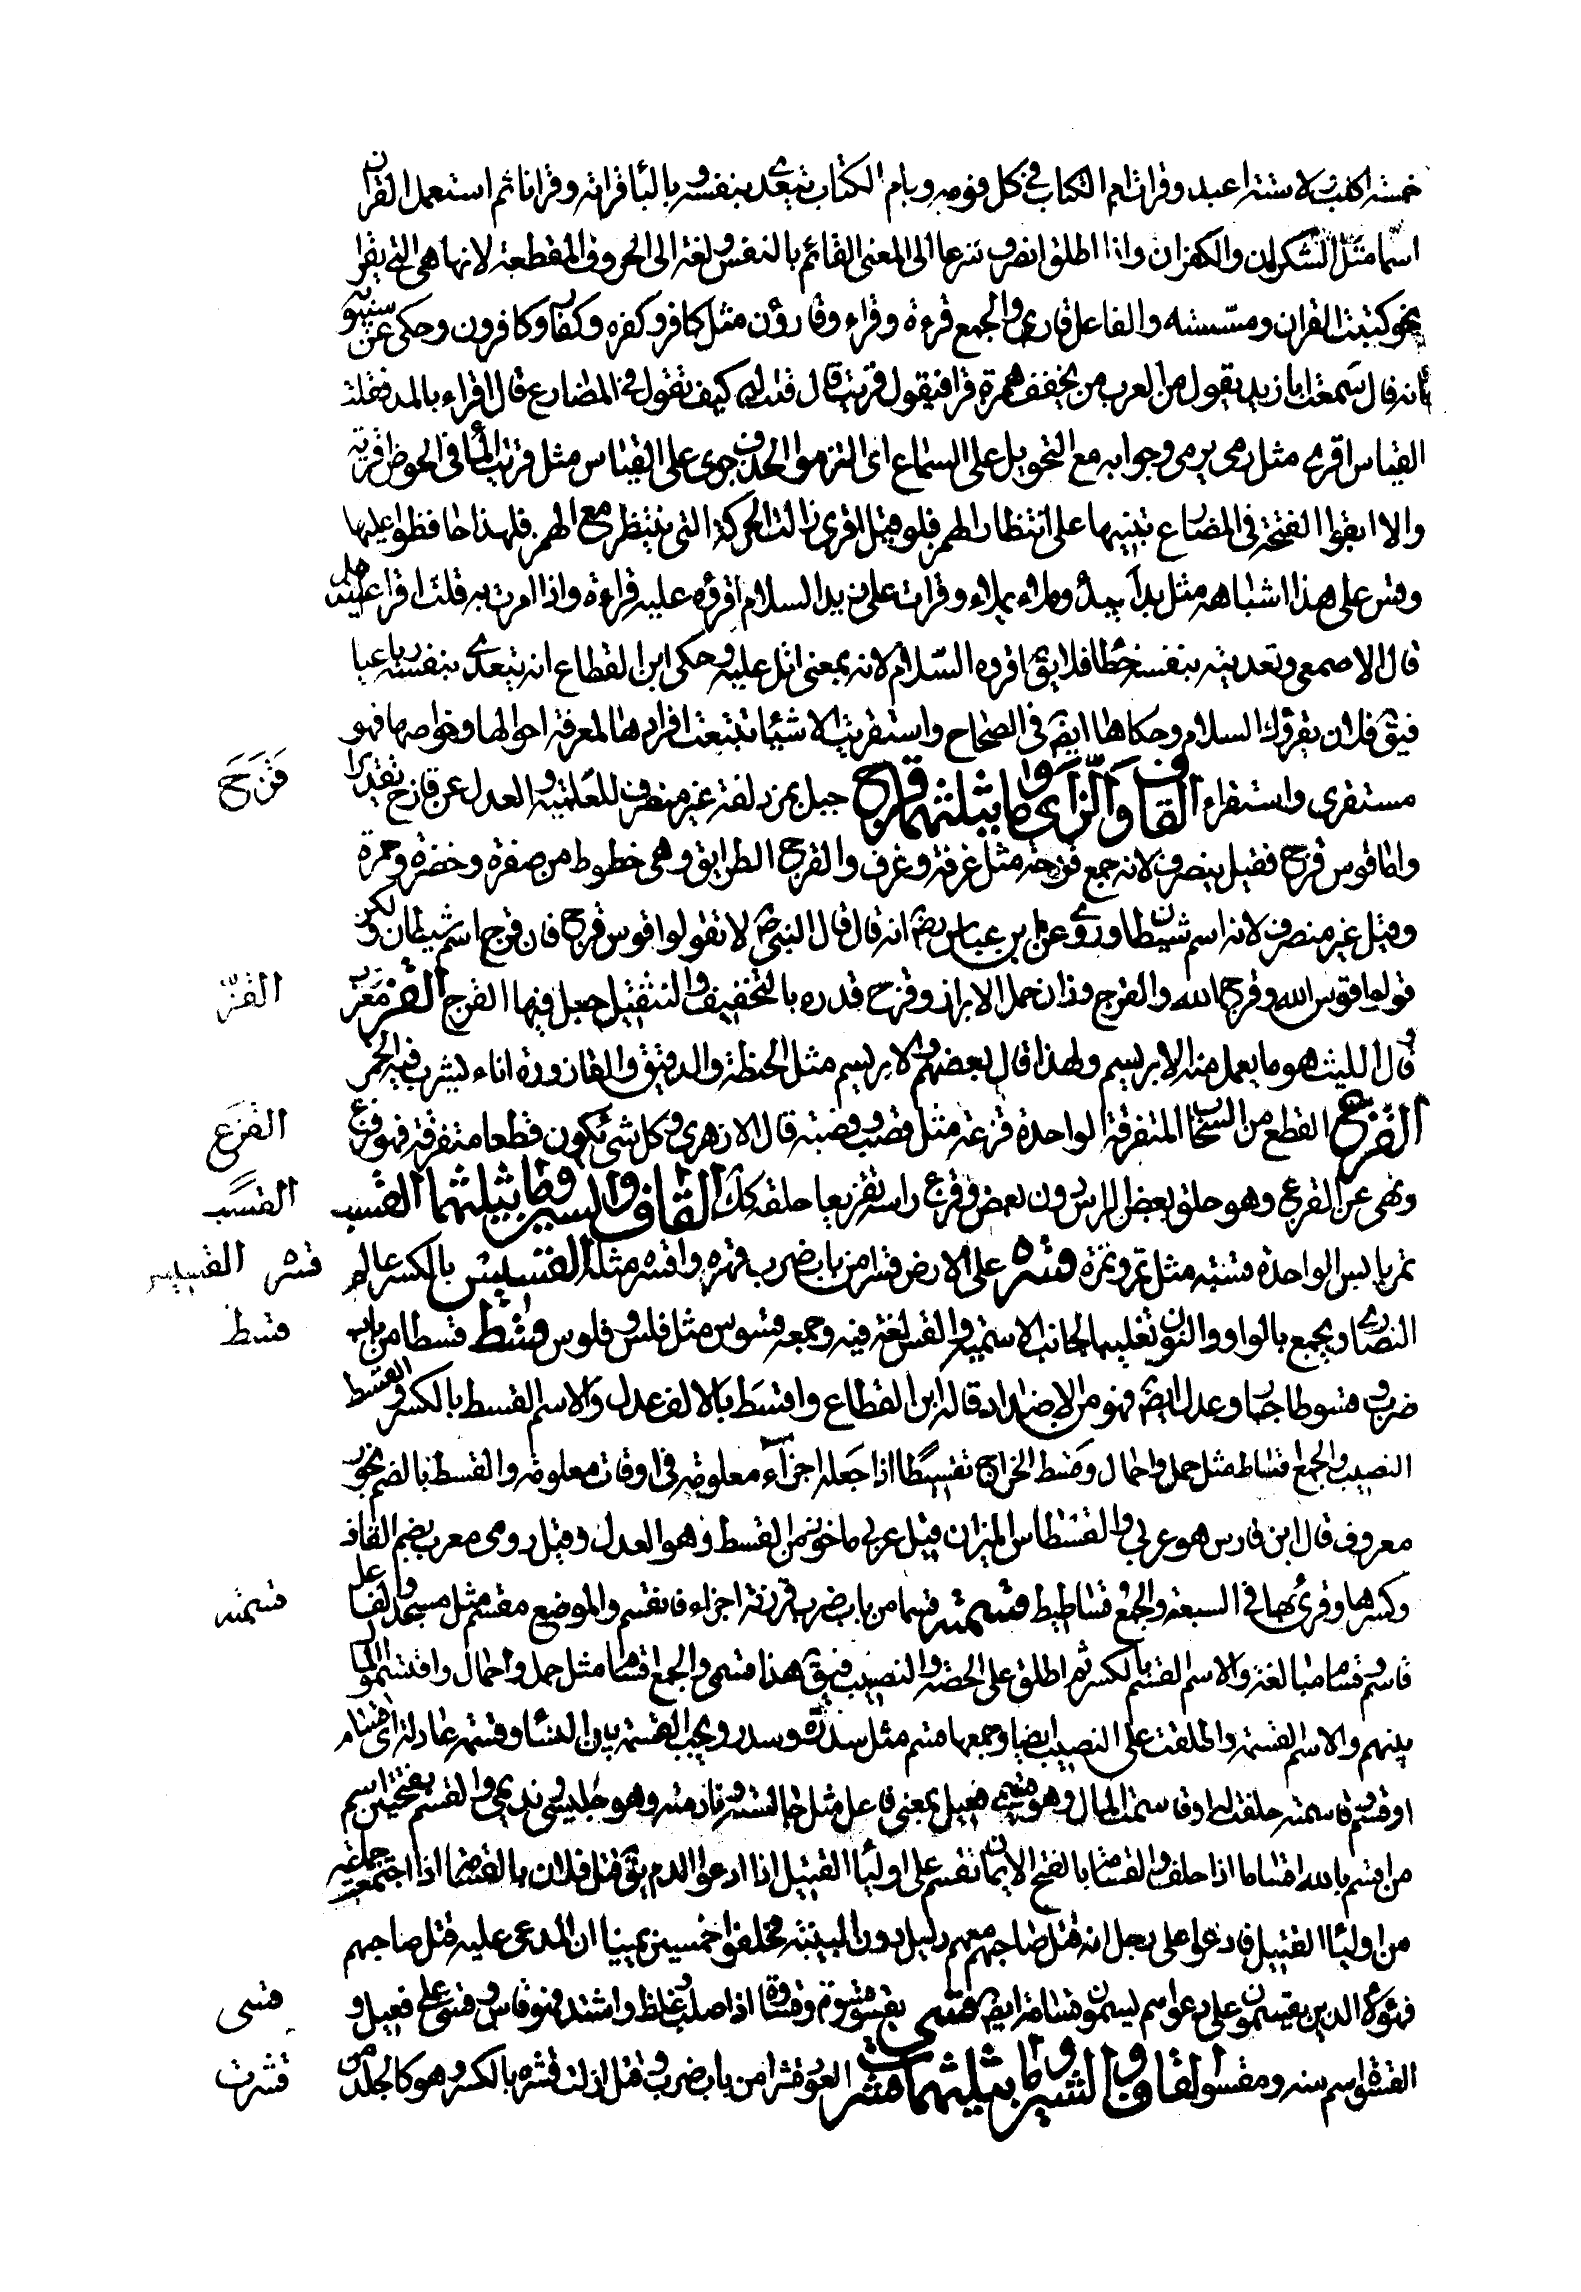 خمسة اكلب لا ستة اعبد وقرات ام الكتاب في كل قومة وبام الكتاب يتعدى بنفسه وبالبا قراة وقرانا ثم استعمل القران
اسما مثل الشكران والكفران واذا اطلق انصرف شرعا الى المعنى القائم بالنفس ولغة الى الحروف المقطعة لانها هي التي يقرا
نحو كتبت القران ومسسته والفاعل قارى والجمع قرءة وقراء وقارؤن مثل كافر وكفرة وكفار وكافرون وحكى عن سيبويه
بانه قال سمعت ابا زيد يقول من العرب من يخفف همزة قرا فيقول قريت قال قلت له كيف تقول في المضارع قال اقراء بالمد فقلت
القياس اقرى مثل رمى يرمى وجوابه مع التحويل على السماع اى التزموا الحذف جرى على القياس مثل قريت الما في الحوض اقريه
والا ابقوا الفتحة في المضارع تنبيها على انتظار الهمز فلو قيل اقرى زالت الحركة التى تنتظر مع الهمز فلهذا حافظوا عليها
وقس على هذا اشباهه مثل بدا يبدأ وملاء يملاء وقرات على زيد السلام اقرؤه عليه قراءة واذا امرت به قلت اقرا عليه
قال الاصمعى وتعديته بنفسه خطا فلا يق اقروه السلام لانه بمعنى اتل عليه وحكى ابن القطاع انه يتعدى بنفسه رباعيا
فيق فلان يقرؤك السلام وحكاها ايض في الصحاح واستقريت الاشيا تتبعت افرادها لمعرفة احوالها وخواصها فهو
مستقرى واستقراء القاف والزاى وما يثلثهما قزح جبل بمزدلفة غير منصرف للعلمية والعدل عن قازح تقديرا
قزح
واما قوس قزح فقيل ينصرف لانه جمع قزحة مثل غرفة وغرف والقزح الطرايق وهى خطوط من صفرة وخضرة وحمرة
وقيل غير منصرف لانه اسم شيطان وروى عن ابن عباس رض انه قال قال النبى ص لا تقولوا قوس قزح فان قزح اسم شيطان ولكن
قولوا قوس الله وقزح الله والقزح وزان حمل الابزار وقزح قدره بالتخفيف والتثقيل جعل فيها القزح القز معرب
القز
قال الليث هو ما يعمل منه الابريسم ولهذا قال بعضهم القز والابريسم مثل الحنطة والدقيق والقازوزة اناء يشرب فيه الخمر
القزع القطع من السحاب المتفرقة الواحدة قزعة مثل قصب وقصبة قال الازهرى وكل شئ يكون قطعا متفرقة فهو قزع
القزع
ونهى عن القزع وهو حلق بعض الراس دون بعض وقزع راسه تقزيعا حلقه كذلك القاف والسين وما يثلثهما القسب
القسب
تمر يابس الواحدة قسبة مثل تمر وتمرة قسره على الامر قسرا من باب ضرب قهره واقتسره مثله القسيس بالكسر عالم
قسر القسيس
النصارى ويجمع بالواو والنون تغليبا لجانب الاسمية والقس لغة فيه وجمعه قسوس مثل فلس وفلوس قسط قسطا من باب
قسط
ضرب وقسوطا جار وعدل ايض فهو من الاضداد قاله ابن القطاع واقسط بالالف عدل والاسم القسط بالكسر والقسط
النصيب والجمع اقساط مثل حمل واحمال وقسط الخراج تقسيطا اذا جعله اجزاء معلومة في اوقات معلومة والقسط بالضم بخور
معروف قال ابن فارس هو عربى والقسطاس الميزان قيل عربى ماخوذ من القسط وهو العدل وقيل رومى معرب بضم القاف
وكسرها وقرئ بهما في السبعة والجمع قساطيط قسمته قسما من باب ضرب فرزته اجزاء فانقسم والموضع مقسم مثل مسجد والفاعل
قسمته
قاسم وقسام مبالغة والاسم القسم بالكسر ثم اطلق على الحصة والنصيب فيق هذا قسمى والجمع اقسام مثل حمل واحمال واقتسموا المال
بينهم والاسم القسمة واطلقت على النصيب ايضا وجمعها قسم مثل سدرة وسدر ويجب القسمة بين النسا وقسمة عادلة اى اقتسام
او قسم وقاسمته حلفت له او قاسمته المال وهو قسيمى فعيل بمعنى فاعل مثل جالسته ونادمته وهو جليسى ونديمى والقسم بفتحتين اسم
من اقسم بالله اقساما اذا حلف والقسامة بالفتح الايمان تقسم على اوليا القتيل اذا ادعوا الدم يق قتل فلان بالقسامة اذا اجتمعت جماعة
من اوليا القتيل فادعوا على رجل انه قتل صاحبهم ومعهم دليل دون البينة فحلفوا خمسين يمينا ان المدعى عليه قتل صاحبهم
فهؤلاء الذين يقسمون على دعواهم يسمون قسامة ايض قسى يقسو قسوة وقساوة اذا صلب وغلظ واشتد فهو قاس وقسى على فعيل و
قسى
القسوة اسم منه ومقسو القاف والشين وما يثلثهما قشر العود قشرا من باب ضرب وقتل ازلت قشره بالكسر وهو كالجلد من
قشرت